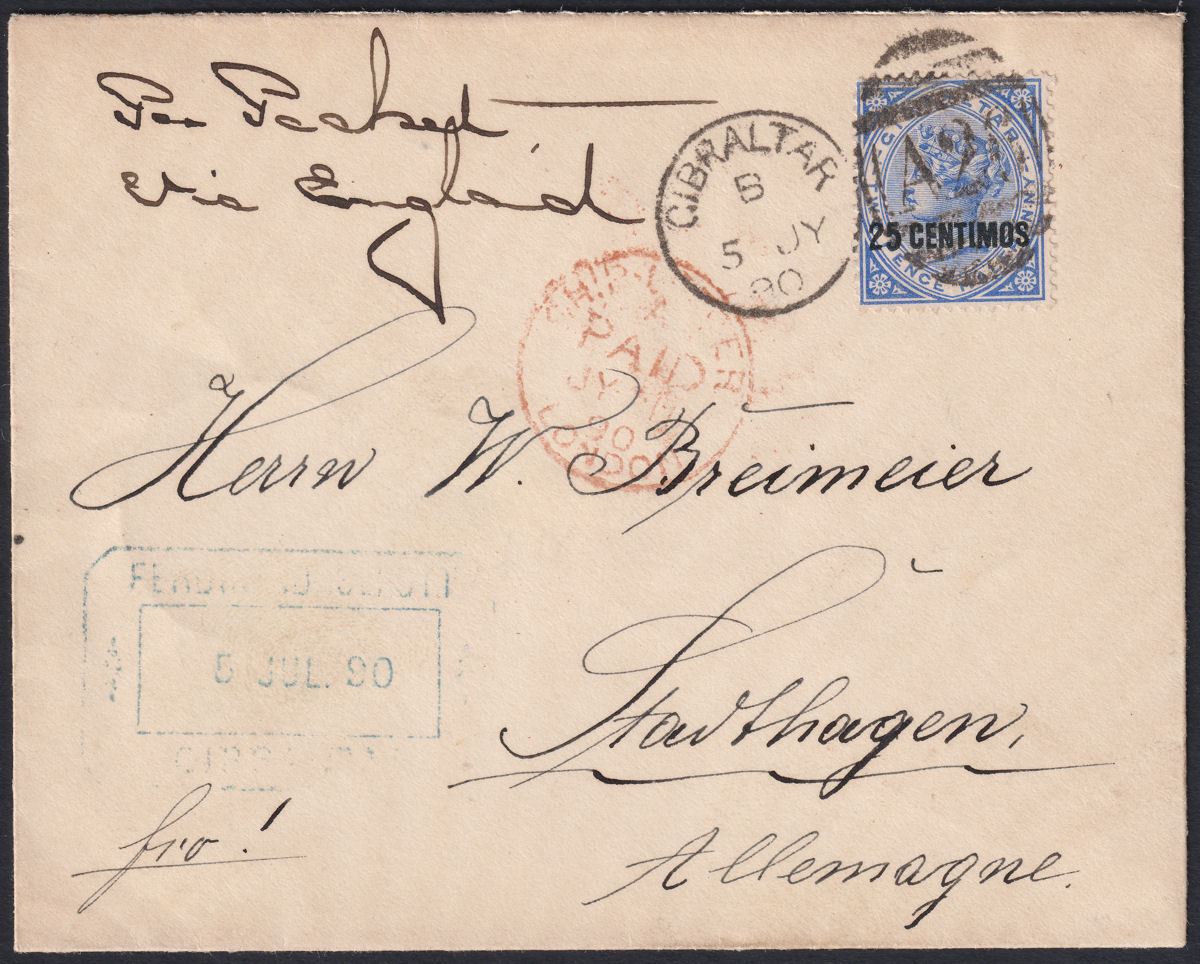 Per Packet
via England
GIBRALTAR
B
5 JY
90
A26
GIBRALTAR
25 CENTIMOS
PENCE
SHIP-LETTER
PAID
JY
90
LONDON
Herrn W. Breimeier
5 JUL. 90
Stadthagen,
fro!
Allemagne.